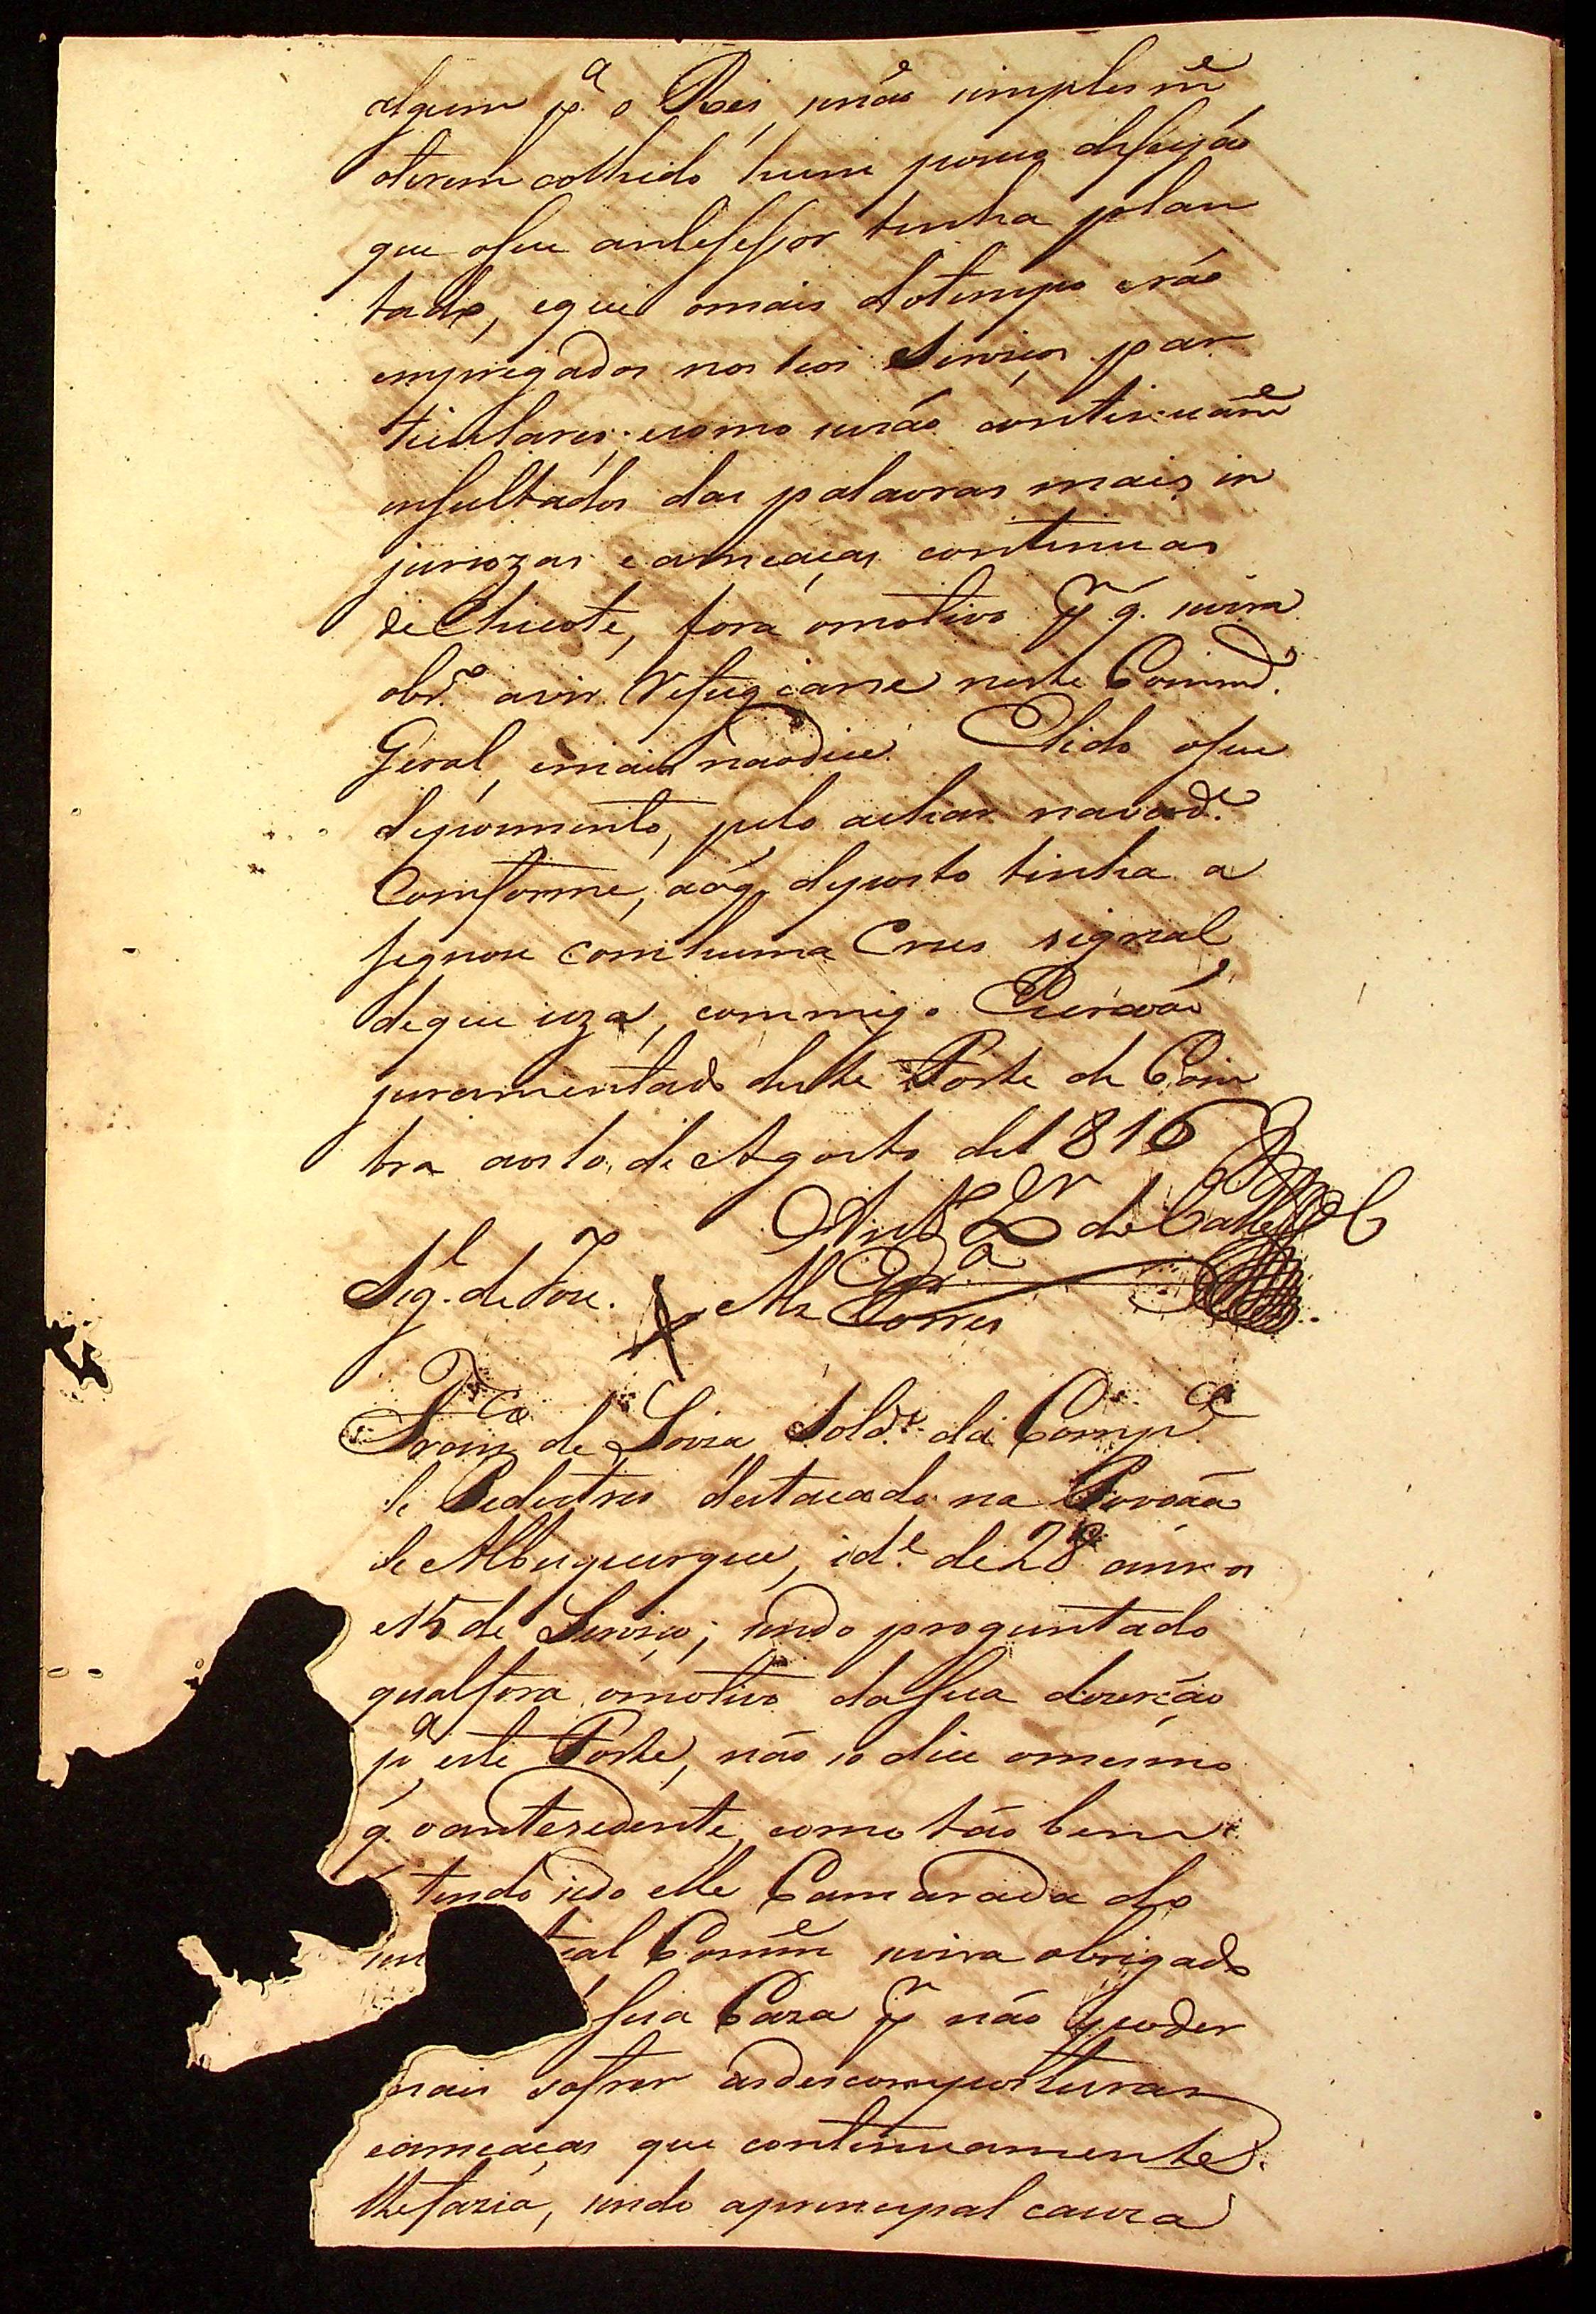 algum p.ª o Rei, senão simplesm.e
oterem colhido hum pouco defeijão
que oseu antesessor tinha plan
tado, eque omais dotempo erão
empregados nos seos Serviços par
ticulares: ecomo serão continuam.e
insultados das palavras mais in
juriozas e ameaças continuas
de Chicote, fora omotivo p.r q. sevira
obr.º avir Refugiarse neste Comm.d.
Geral, emais naodice. Elido oseu
depoimento, pelo achar naverd.e
Comforme, aoq. deposto tinha a
signou comhuma Crus signal
deque uza, commigo Escrivão
juramentado deste Forte de Coim
bra aos 10 de Agosto de 1816
Ant.º de
Sig.l de Joze. X
Torres
Fran.co de Souza Sold.º da Comp.ª
de Pedestres destacado na Povoaçã
de Albuquerque, id.e de 28 annos
e 15 de Serviço; sendo proguntado
qual fora omotivo dasua deserção
p.ª este Forte, não só dice omesmo
q. o antesedente, como tão bem
tendo sido elle Camarada do
al Comm.e sevira obrigado
sua Caza p.r não poder
mais sofrer asdescomposturas
eameaças que continuamente
lhefazia, sendo aprincipal cauza